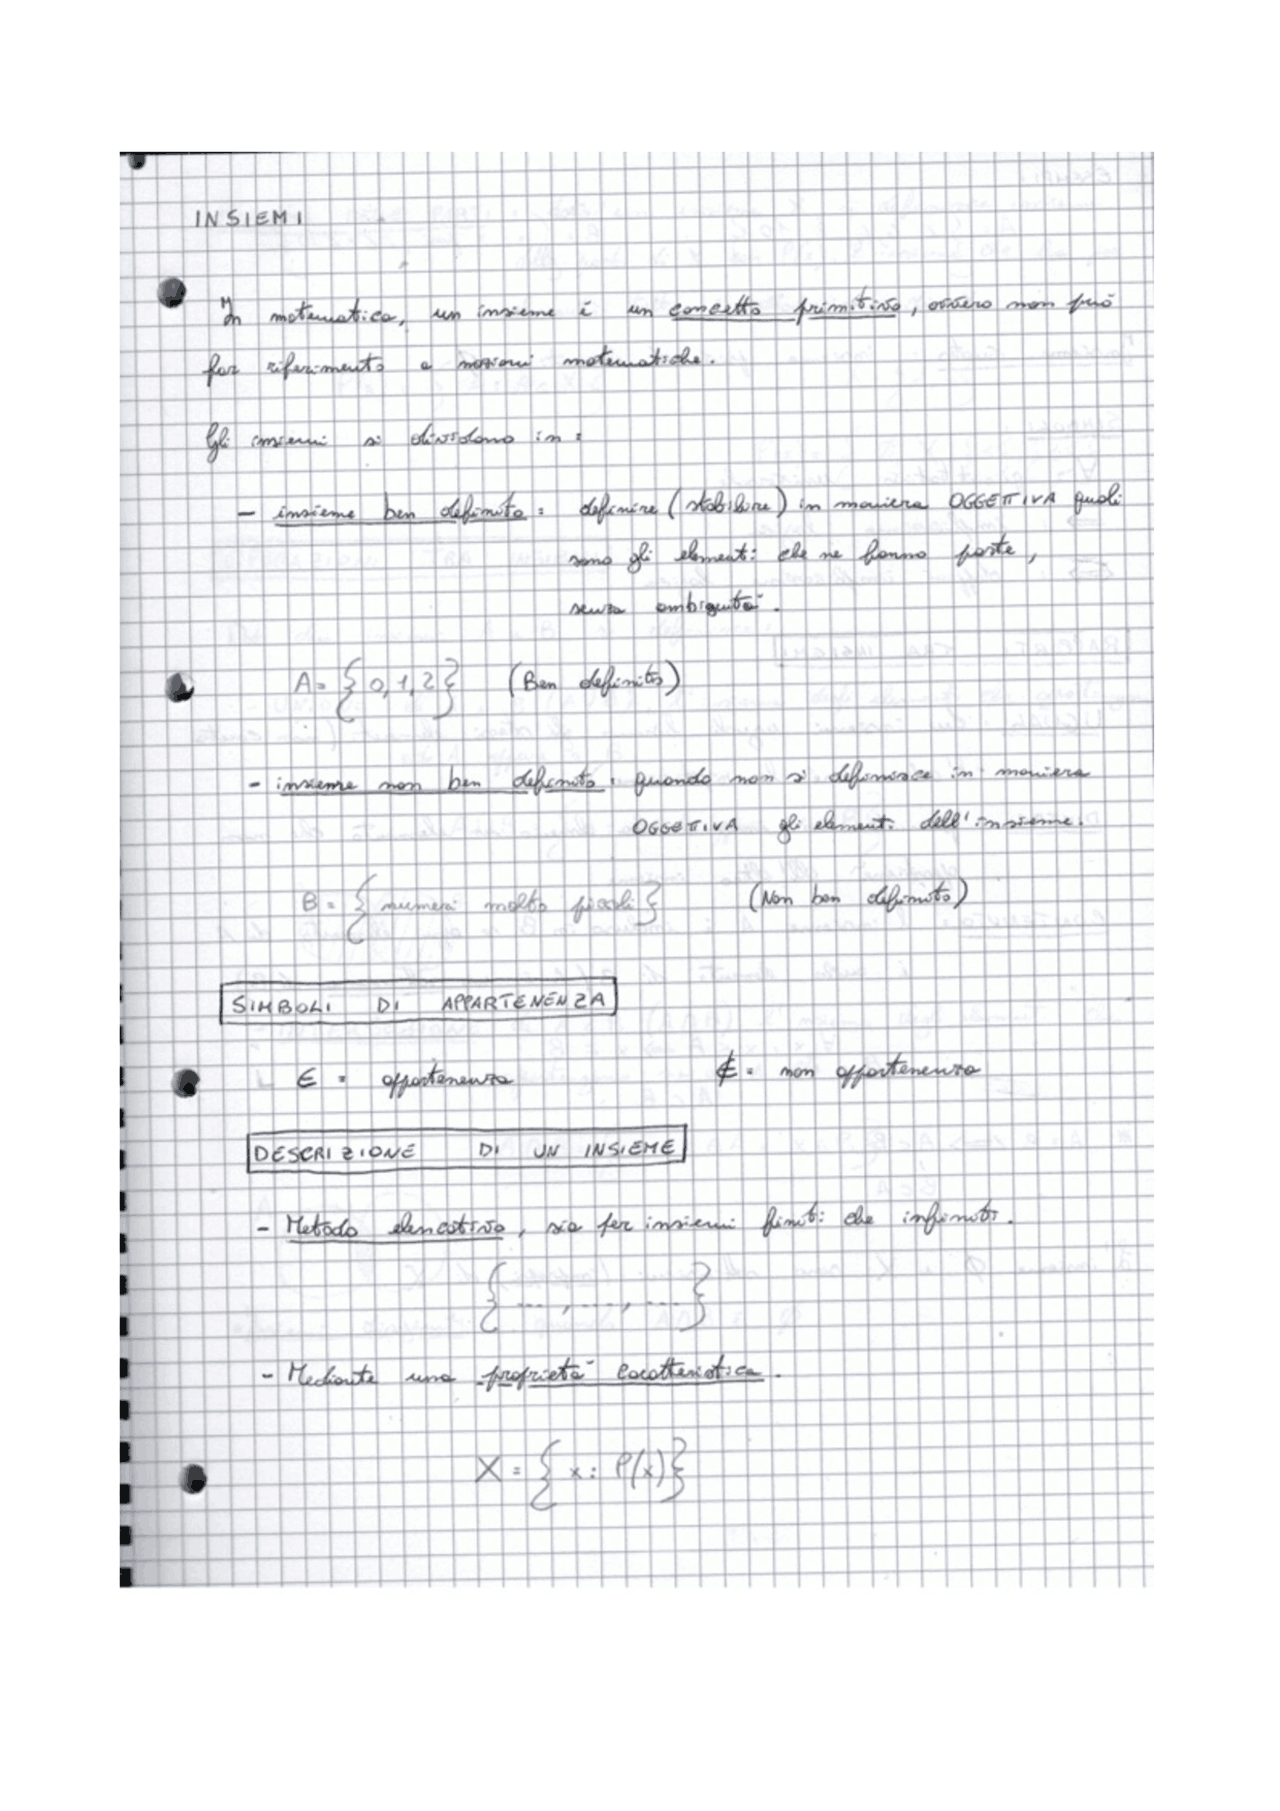 INSIEMI
In matematica, un insieme è un concetto primitivo, ovvero non può
far riferimento a nozioni matematiche.
Gli insiemi si dividono in:
- insieme ben definito: definire (stabilire) in maniera OGGETTIVA quali
sono gli elementi che ne fanno parte,
senza ambiguità.
A = {0, 1, 2} (Ben definito)
- insieme non ben definito: quando non si definisce in maniera
OGGETTIVA gli elementi dell'insieme.
B = {numeri molto piccoli} (Non ben definito)
SIMBOLI DI APPARTENENZA
∈ = appartenenza ∉ = non appartenenza
DESCRIZIONE DI UN INSIEME
- Metodo elencativo, sia per insiemi finiti che infiniti.
{... , ... , ...}
- Mediante una proprietà caratteristica.
X = {x : P(x)}